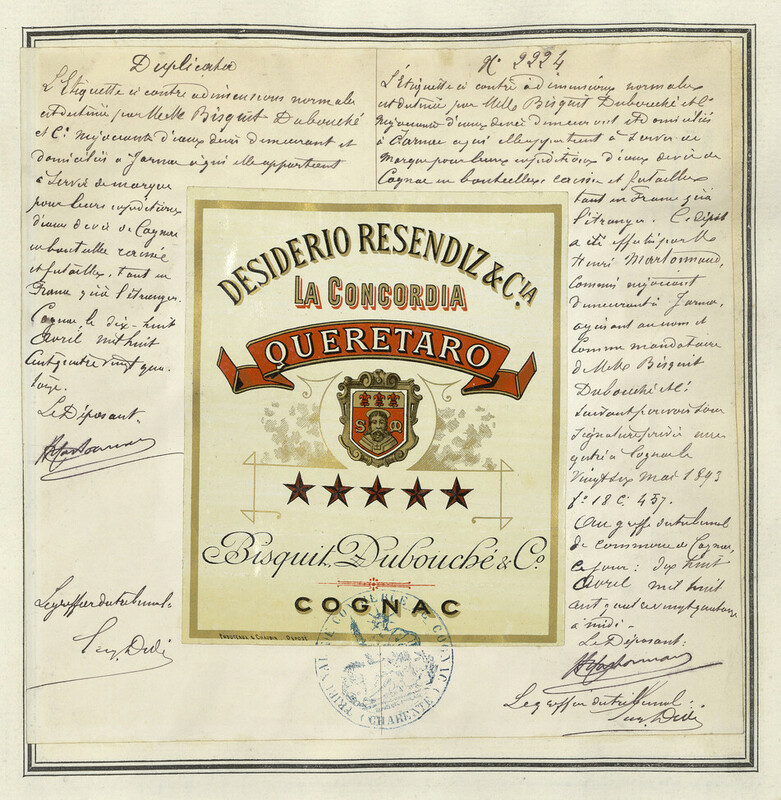 Duplicata
L'Etiquette ci contre a dimensions normales
est destinée par MM Bisquit Dubouché
et Cie négociants d'eaux devie demeurant et
domiciliés à Jarnac à qui elle appartient
à servir de marque
pour leurs expéditions
d'eaux de vie de Cognac
en bouteille caisse
et futailles, tant en
France qu'à l'étranger.
Cognac, le dix-huit
Avril mil huit
cent quatre vingt qua
torze.
Le Déposant.
Le greffier du tribunal:
No 2224
L'Étiquette ci contre à dimensions normales
est destinée par MM Bisquit Dubouché et Cie
négociants d'eaux devie demeurant et domiciliés
à Jarnac à qui elle appartient à servir de
marque pour leurs expéditions d'eaux de vie de
Cognac en bouteilles, caisse et futailles
tant en France qu'à
l'étranger. Ce dépôt
a été effectué par M
Henri Martonnaud,
commis négociant
demeurant à Jarnac,
agissant au nom et
comme mandataire
de MM Bisquit
Dubouché et Cie
suivant pouvoir sous
signature privée enre
gistré à Cognac le
vingt six Mai 1893
fo 18 Co 457.
Au greffe du tribunal
de commerce de Cognac,
ce jour: dix huit
Avril mil huit
cent quatre vingt quatorze
à midi.-
Le Déposant:
Le greffier du tribunal:
DESIDERIO RESENDIZ & CIA
LA CONCORDIA
QUERETARO
S M
Bisquit, Dubouché & Co.
COGNAC
TRIBUNAL DE COMMERCE DE COGNAC
(CHARENTE)